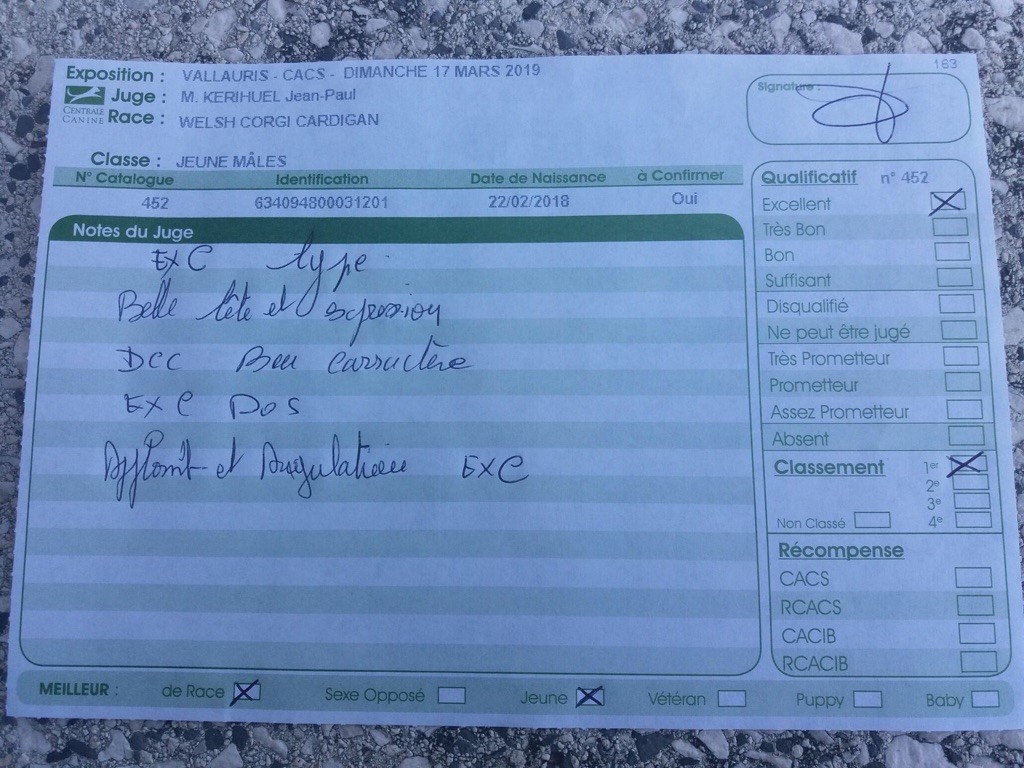 163
Exposition : VALLAURIS - CACS - DIMANCHE 17 MARS 2019
Juge : M. KERIHUEL Jean-Paul
CENTRALE CANINE
Race : WELSH CORGI CARDIGAN
Signature :
Classe : JEUNE MÂLES
N° Catalogue Identification Date de Naissance à Confirmer
452 634094800031201 22/02/2018 Oui
Notes du Juge
EXC type
Belle tête et expression
DCC Beau carractère
EXC DOS
et Angulation EXC
Qualificatif n° 452
Excellent
Très Bon
Bon
Suffisant
Disqualifié
Ne peut être jugé
Très Prometteur
Prometteur
Assez Prometteur
Absent
Classement 1er
2e
3e
Non Classé 4e
Récompense
CACS
RCACS
CACIB
RCACIB
MEILLEUR : de Race Sexe Opposé Jeune Vétéran Puppy Baby